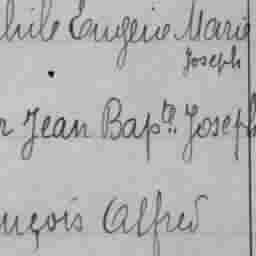 hile Eugène Marie
Joseph
r Jean Bapte Joseph
nçois Alfred